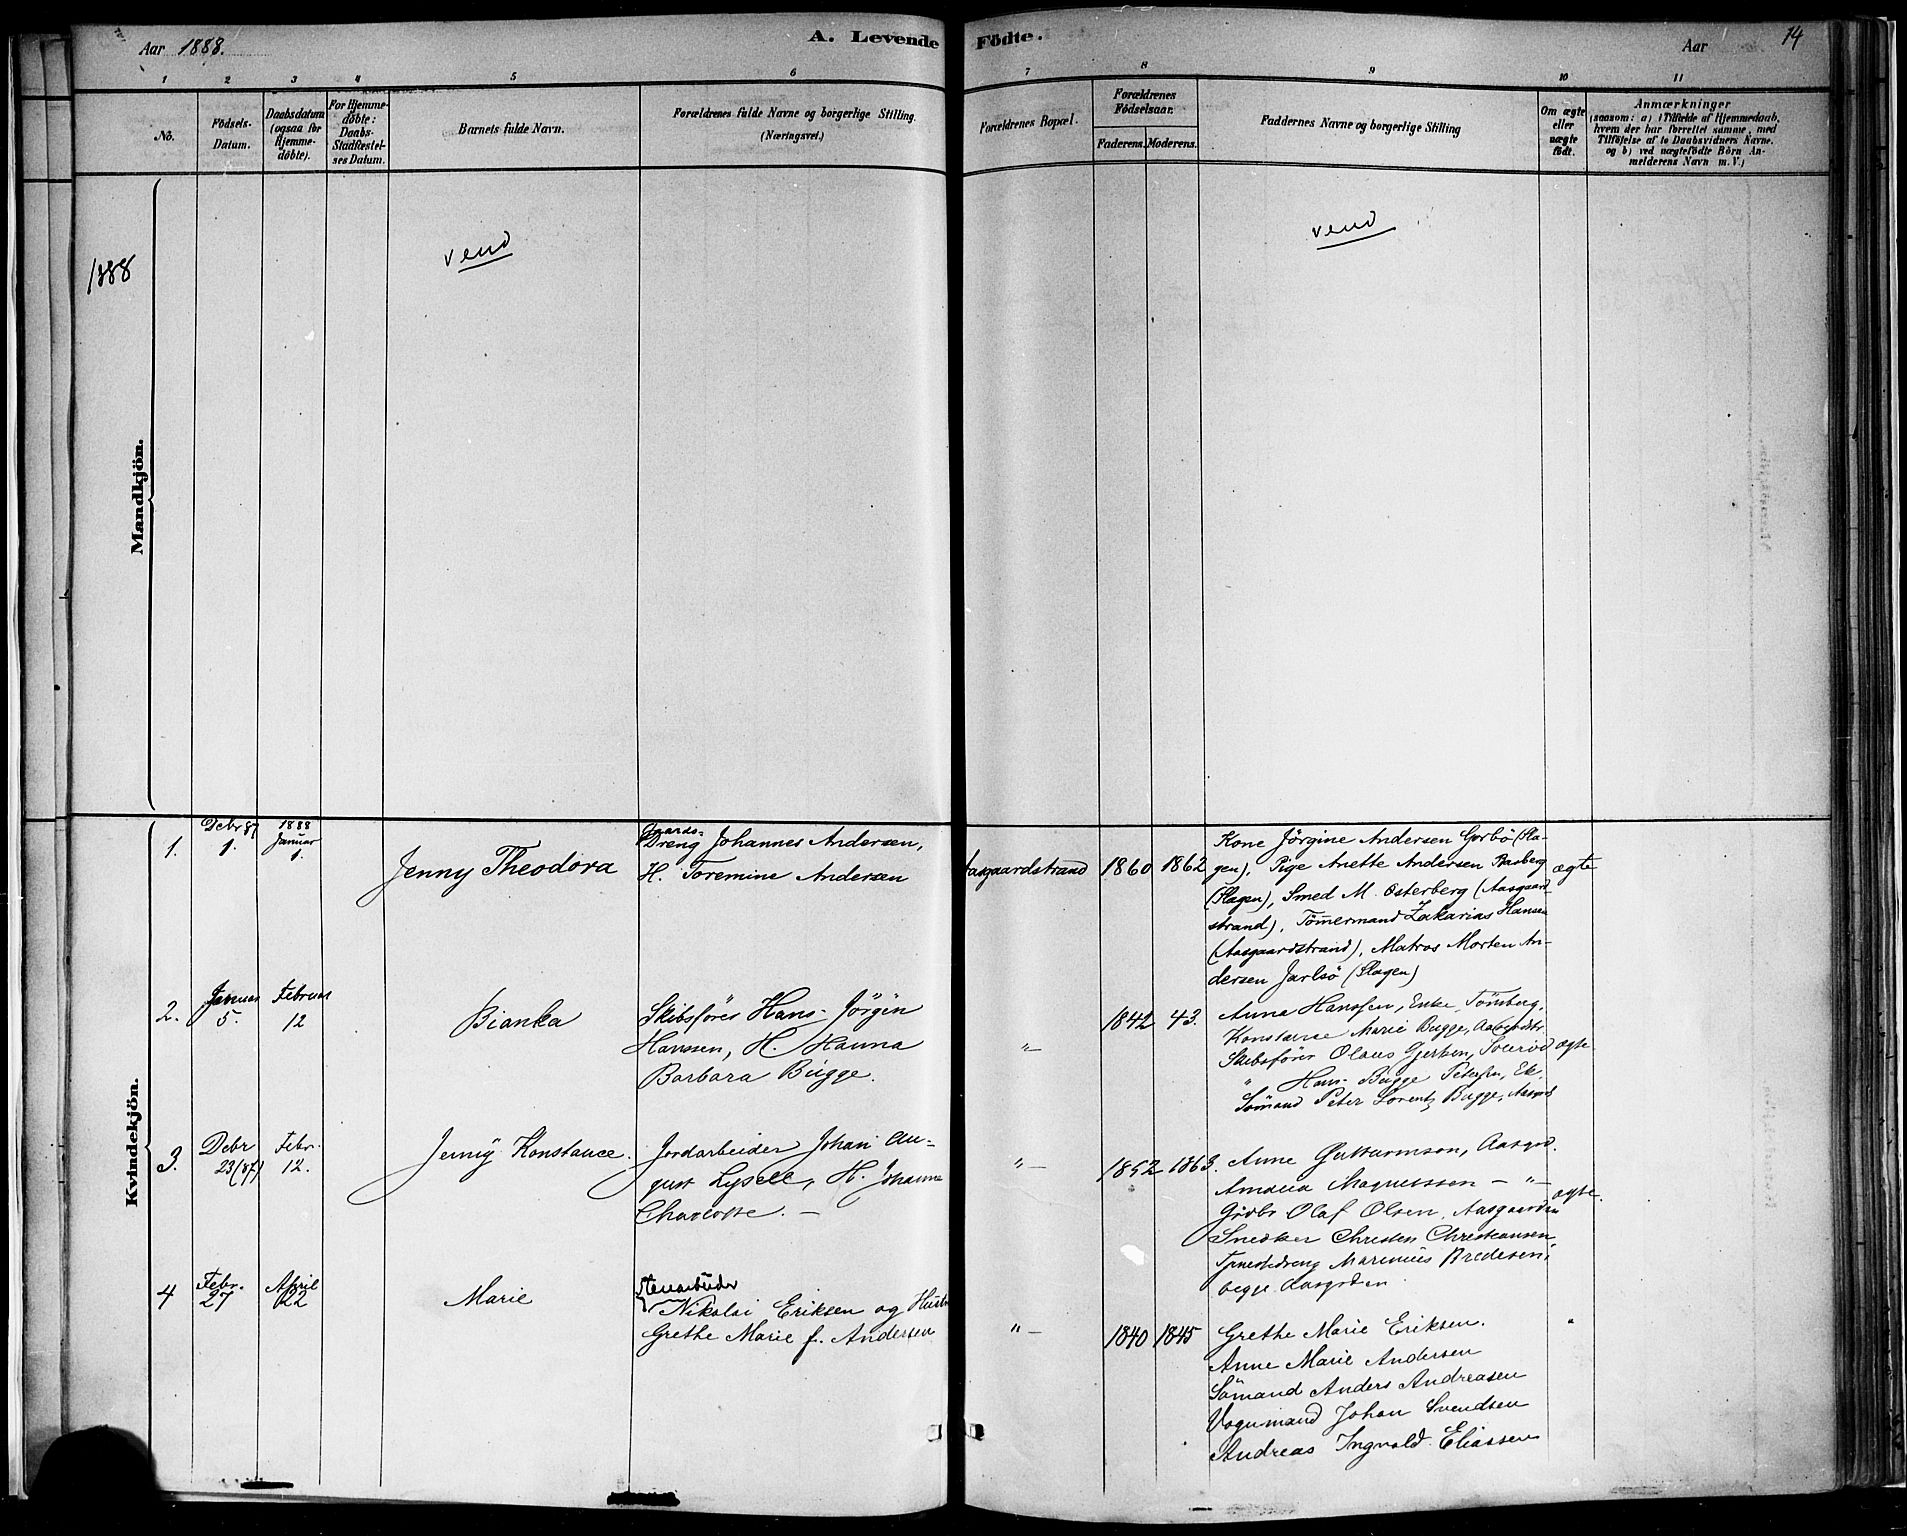 Aar 1888.
A. Levende Födte.
Aar
14
1 2 3 4 5 6 7 8 9 10 11
Nò.
Födsels-
Datum.
Daabsdatum
(ogsaa for
Hjemme-
döbte).
For Hjemme-
döbte:
Daabs-
Stadfæstel-
ses Datum.
Barnets fulde Navn.
Forældrenes fulde Navne og borgerlige Stilling.
(Næringsvei.)
Forældrenes Bopæl.
Forældrenes
Födselsaar.
Faderens. Moderens.
Faddernes Navne og borgerlige Stilling
Om ægte
eller
uægte
födt.
Anmærkninger
(saasom: a) i Tilfælde af Hjemmedaab,
hvem der har forrettet samme, med
Tilföielse af to Daabsvidners Navne.
og b) ved uægtefödte Börn An-
melderens Navn m. V.)
1888
vend
vend
Mandkjön.
Kvindekjön.
1.
Debr 87
1.
1888
Januar
1.
Jenny Theodora
Gaards-
Dreng Johannes Andersen,
H. Toremine Andersen
Aasgaardstrand
1860 1862
Kone Jörgine Andersen Gorbö (Sla-
gen), Pige Anette Andersen Basberg
(Slagen), Smed M. Osterberg (Aasgaard
strand), Tömmermand Zakarias Hansen
(Aasgaardstrand), Matros Morten An-
dersen Jarlsö (Slagen)
ægte
2.
Januar
5.
Februar
12
Bianka
Skibsförer Hans Jörgin
Hanssen, H. Hanna
Barbara Bugge.
"—
1842 43.
Anna Hanssen, Enke, Tönsberg,
Konstanse Marie Bugge,
Skibsförer Olaus Gjertsen,
" Hans Bugge Petersen, Ek
Sömand Peter Lorentz Bugge,
ægte
3.
Debr
23(87)
Febr.
12.
Jenny Konstance.
Jordarbeider Johan Au-
gust Lysell, H. Johanne
Charlotte. —
"—
1852 1863.
Anne Guttormson, Aasgrd.
Amalia Magnussson — " —
Grdbr Olaf Olsen, Aasgaarden
Snedker Christen Christiansen,
Tjenestedreng Marinius Bredesen,
begge Aasgrden.
ægte.
4
Febr.
27
April
22
Marie
Stenarbeider
Nikolai Eriksen og Hustru
Grethe Marie f. Andersen
"—
1840 1845
Grethe Marie Eriksen.
Anne Marie Andersen
Sömand Anders Andreasen
Vognmand Johan Svendsen
Andreas Ingvald Eliassen
"